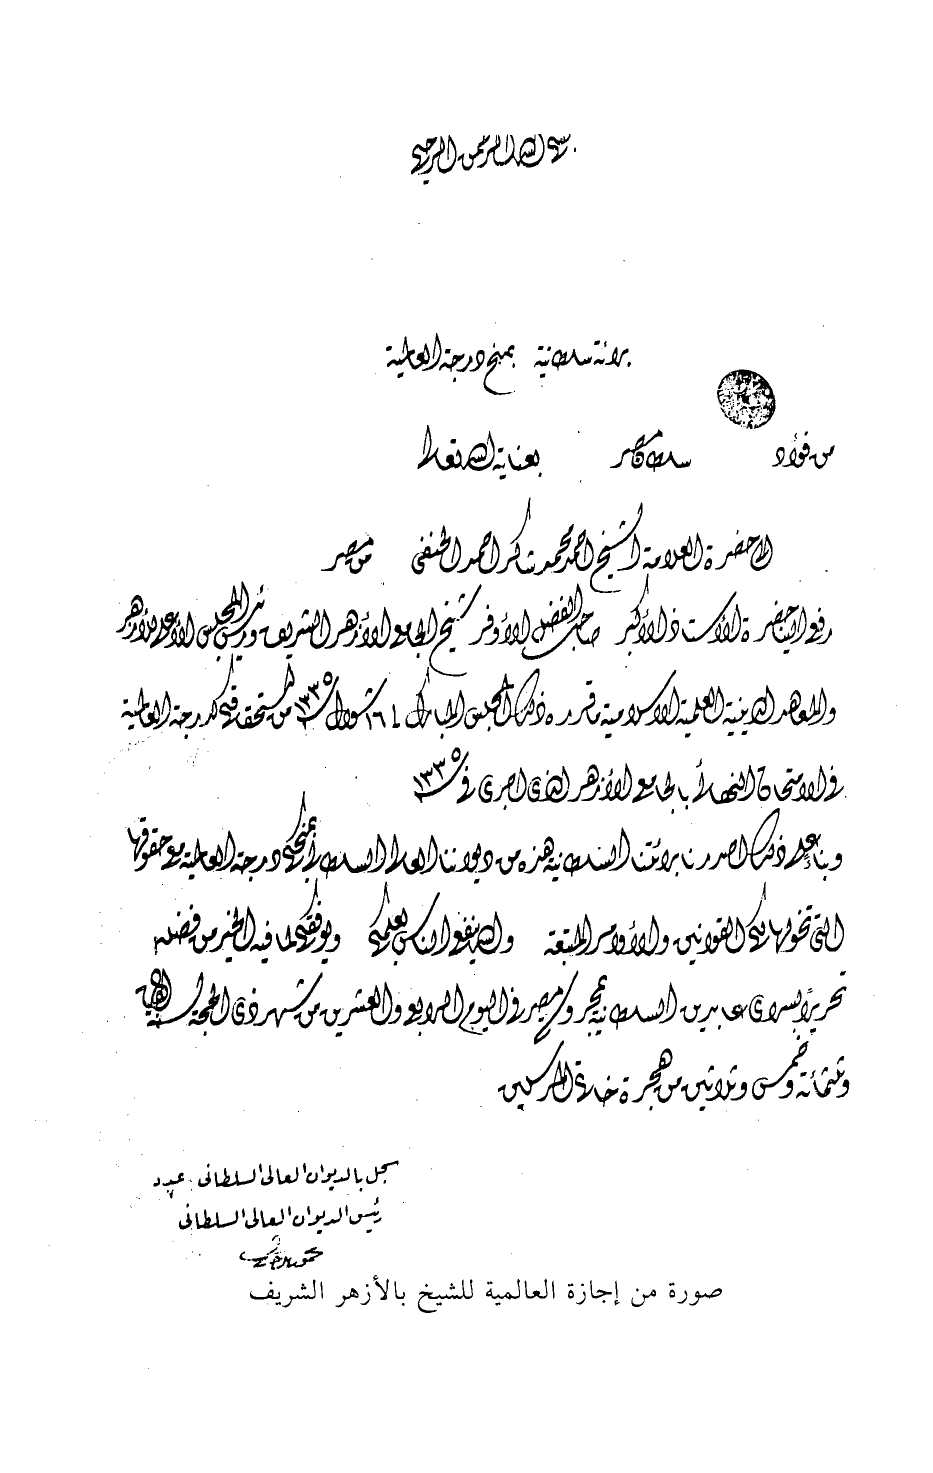 بسم الله الرحمن الرحيم
براءة سلطانية بمنح درجة العالمية
من فؤاد سلطان مصر بعناية الله تعالى
إلى حضرة العلامة الشيخ احمد محمد شاكر احمد الحنفي من مصر
رفع الينا حضرة الأستاذ الأكبر صاحب الفضل الأوفر شيخ الجامع الأزهر الشريف ورئيس المجلس الأعلى للأزهر
والمعاهد الدينية العلمية الاسلامية ما قرره ذلك المجلس المبارك في ١٦ شوال ١٣٣٥ من استحقاقكم لدرجة العالمية
في الامتحان النهائي بالجامع الأزهر الذي اجرى في ١٣٣٥
وبناء على ذلك اصدرنا براءتنا السلطانية هذه من ديواننا العالي السلطاني بمنحكم درجة العالمية مع حقوقها
التي تخولها لكم القوانين والأوامر المتبعة والله ينفع الناس بعلمكم ويوفقكم لما فيه الخير من فضله
تحريرًا بسراي عابدين السلطانية بمحروسة مصر في اليوم الرابع والعشرين من شهر ذي الحجة لسنة الف
وثلثمائة وخمس وثلاثين من هجرة خاتم المرسلين
سجل بالديوان العالي السلطاني عدد
رئيس الديوان العالي السلطاني
صورة من إجازة العالمية للشيخ بالأزهر الشريف